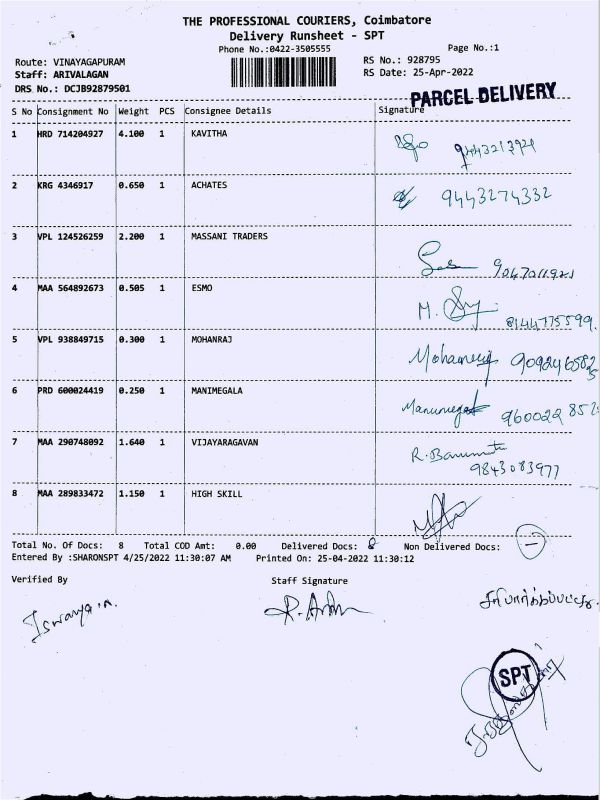 THE PROFESSIONAL COURIERS, Coimbatore
Delivery Runsheet - SPT
Phone No.:0422-3505555 Page No.:1
Route: VINAYAGAPURAM RS No.: 928795
Staff: ARIVALAGAN RS Date: 25-Apr-2022
DRS No.: DCJB92879501
PARCEL DELIVERY
S No Consignment No Weight PCS Consignee Details Signature
1 HRD 714204927 4.100 1 KAVITHA
2 KRG 4346917 0.650 1 ACHATES 9443274332
3 VPL 124526259 2.200 1 MASSANI TRADERS
4 MAA 564892673 0.505 1 ESMO M. 8144775599
5 VPL 938849715 0.300 1 MOHANRAJ
6 PRD 600024419 0.250 1 MANIMEGALA
7 MAA 290748092 1.640 1 VIJAYARAGAVAN
9843083977
8 MAA 289833472 1.150 1 HIGH SKILL
Total No. Of Docs: 8 Total COD Amt: 0.00 Delivered Docs: 8 Non Delivered Docs: -
Entered By :SHARONSPT 4/25/2022 11:30:07 AM Printed On: 25-04-2022 11:30:12
Verified By Staff Signature
சரிபார்க்கப்பட்டது.
SPT